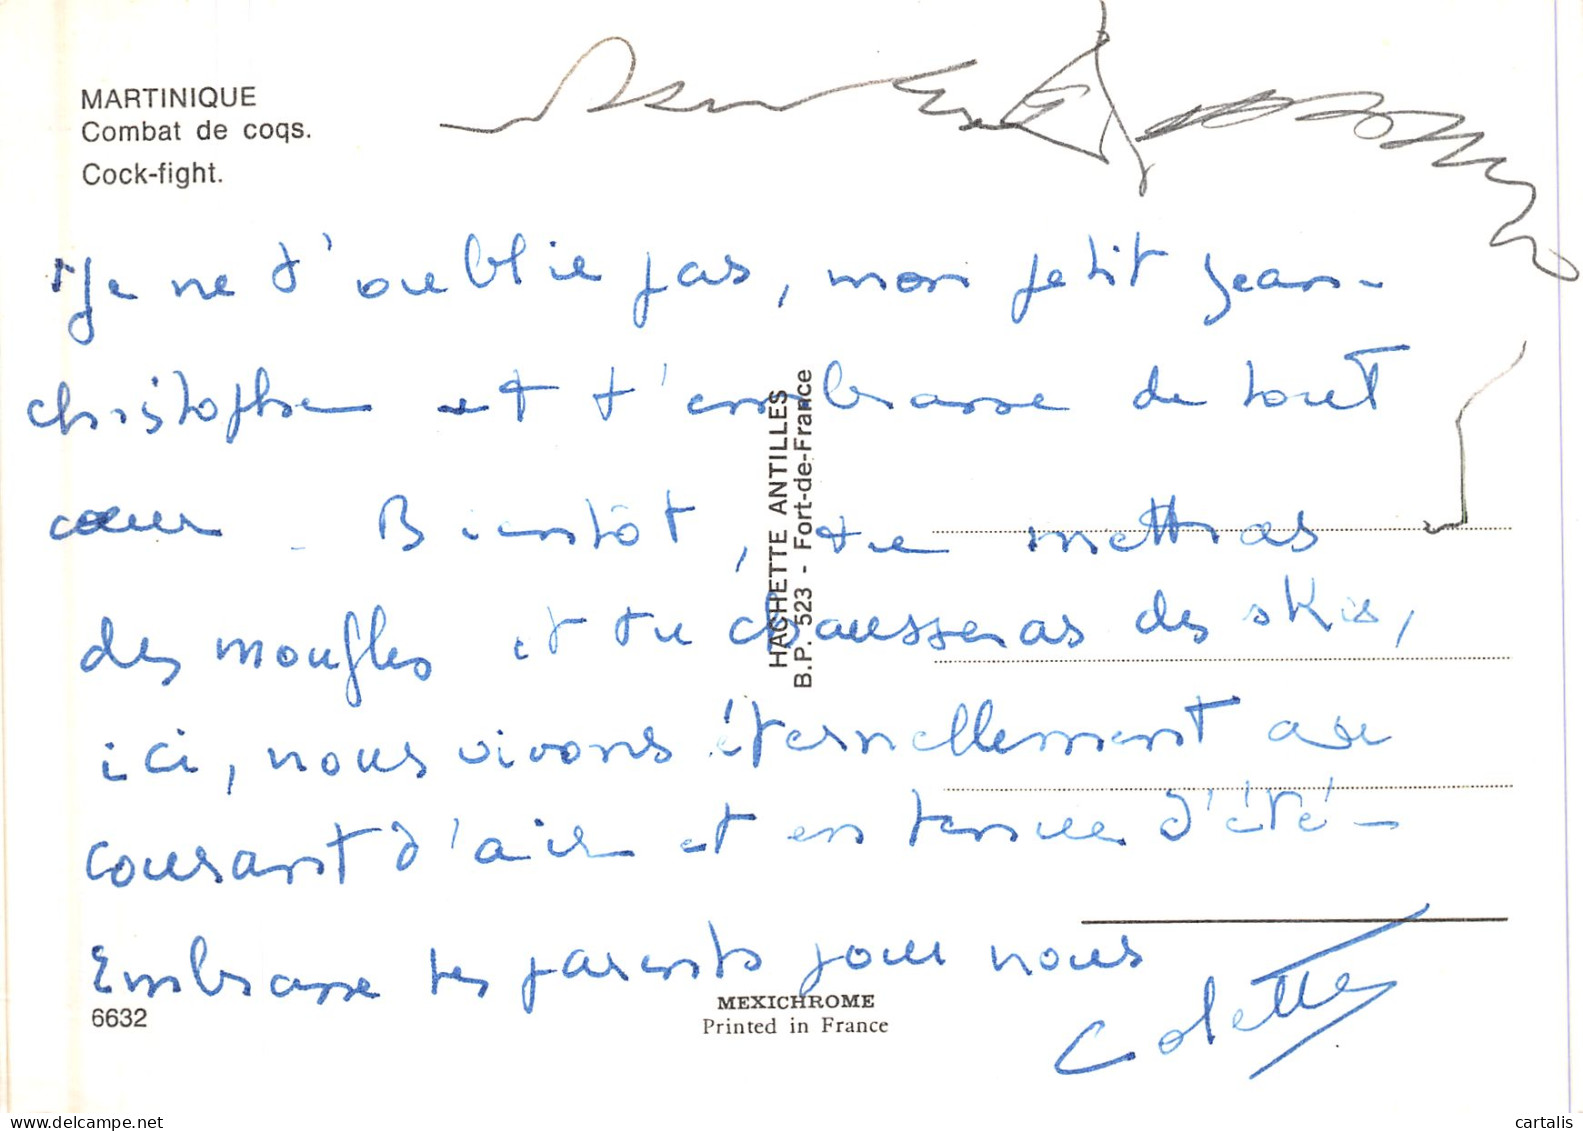 MARTINIQUE
Combat de coqs.
Cock-fight.
Je ne t'oublie pas, mon petit Jean-
christophe et t'embrasse de tout
cœur. Bientôt, tu mettras
des moufles et tu chausseras des skis,
ici, nous vivons éternellement au
courant d'air et en tenue d'été -
Embrasse tes parents pour nous
Colette
HACHETTE ANTILLES
B.P. 523 - Fort-de-France
6632
MEXICHROME
Printed in France
www.delcampe.net
cartalis